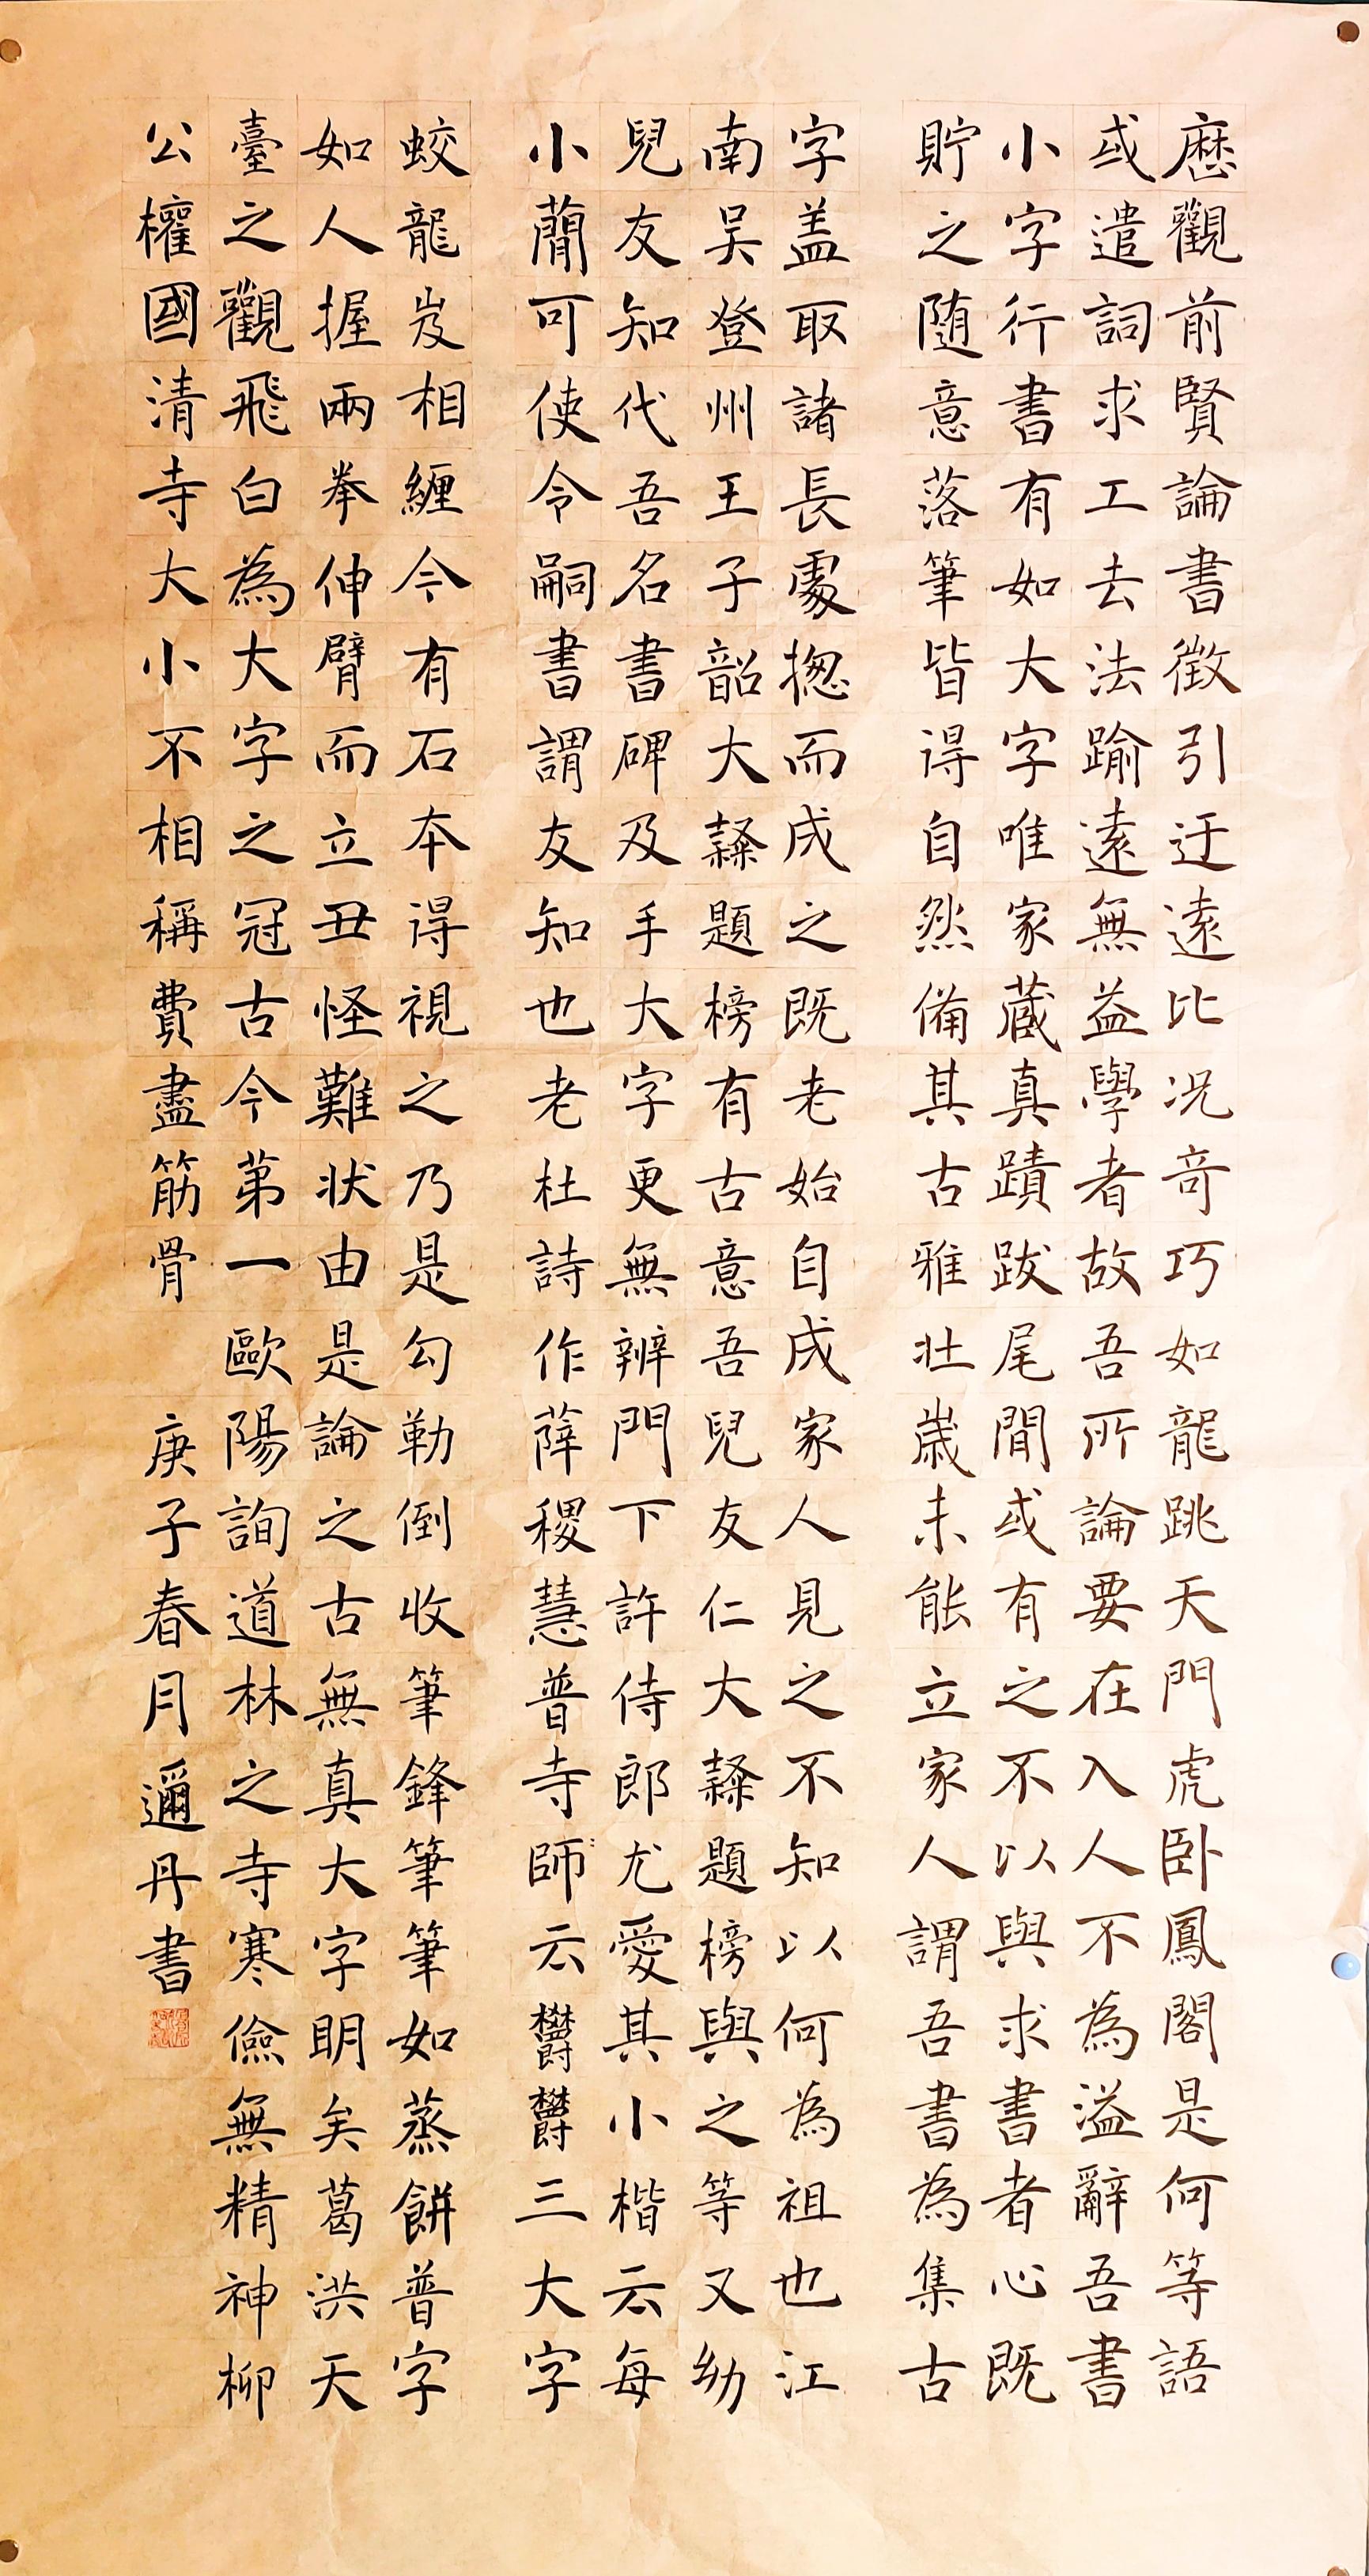 歷觀前賢論書徵引迂遠比况竒巧如龍跳天門虎卧鳳閣是何等語
或遣詞求工去法踰遠無益學者故吾所論要在入人不為溢辭吾書
小字行書有如大字唯家藏真蹟跋尾間或有之不以與求書者心既
貯之随意落筆皆得自然備其古雅壯歲未能立家人謂吾書為集古
字盖取諸長處揔而成之既老始自成家人見之不知以何為祖也江
南吴登州王子韶大隸題榜有古意吾兒友仁大隸題榜與之等又幼
兒友知代吾名書碑及手大字更無辨門下許侍郎尤愛其小楷云每
小蕳可使令嗣書謂友知也老杜詩作薛稷慧普寺師云欝欝三大字
蛟龍岌相纏今有石本得視之乃是勾勒倒收筆鋒筆筆如蒸餅普字
如人握兩拳伸臂而立丑怪難状由是論之古無真大字明矣葛洪天
臺之觀飛白為大字之冠古今第一歐陽詢道林之寺寒儉無精神柳
公權國清寺大小不相稱費盡筋骨 庚子春月邇丹書